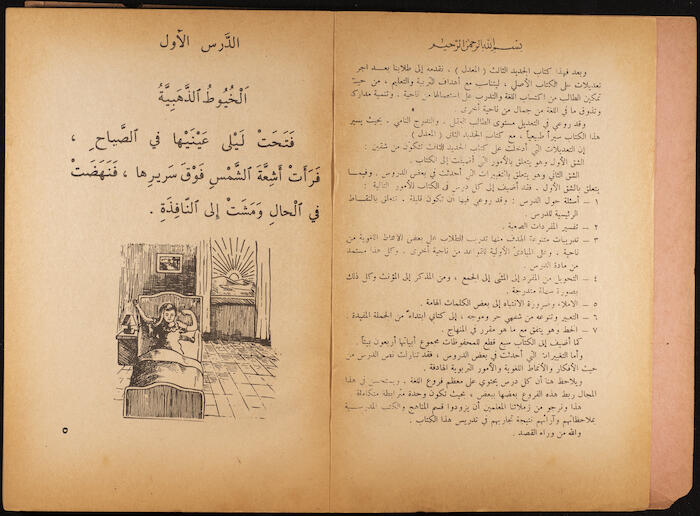 بسم الله الرحمن الرحيم
وبعد فهذا كتاب الجديد الثالث ( المعدل ) . نقدمه إلى طلابنا بعد اجر
تعديلات على الكتاب الأصلي ، ليتناسب مع أهداف التربية والتعليم ، من حيث
تمكين الطالب من اكتساب اللغة والتدرب على استعمالها من ناحية . وتنمية مداركه
وتذوق ما في اللغة من جمال من ناحية أخرى .
وقد روعي في التعديل مستوى الطالب العقلي . والتدرج النامي . بحيث يسير
هذا الكتاب سيراً طبيعياً ، مع كتاب الجديد الثاني ( المعدل )
إن التعديلات التي أدخلت على كتاب الجديد الثالث تتكون من شقين :
الشق الأول وهو يتعلق بالأمور التي أضيفت إلى الكتاب .
الشق الثاني وهو يتعلق بالتغييرات التي أحدثت في بعض الدروس . وفيما
يتعلق بالشق الأول . فقد أضيف إلى كل درس في الكتاب الأمور التالية :
١ – أسئلة حول الدرس : وقد روعي فيها أن تكون قليلة . تتعلق بالنقاط
الرئيسية للدرس .
٢ – تفسير المفردات الصعبة .
٣ – تدريبات متنوعة الهدف منها تدريب الطلاب على بعض الانماط اللغوية من
ناحية . وعلى المبادئ الأولية للقواعد من ناحية أخرى . وكل هذا مستمد
من مادة الدرس .
٤ – التحويل من المفرد إلى المثنى إلى الجمع ، ومن المذكر إلى المؤنث وكل ذلك
بصورة سهلة متدرجة .
٥ – الاملاء وضرورة الانتباه إلى بعض الكلمات الهامة .
٦ – التعبير وتنوعه من شفهي حر وموجه ، إلى كتابي ابتداء من الجملة المفيدة .
٧ – الخط وهو يتفق مع ما هو مقرر في المنهاج .
كما أضيف إلى الكتاب سبع قطع للمحفوظات مجموع أبياتها أربعون بيتاً .
وأما التغييرات التي أحدثت في بعض الدروس ، فقد تناولت نص الدرس من
حيث الأفكار والأنماط اللغوية والأمور التربوية الهادفة .
ويلاحظ هنا أن كل درس يحتوي على معظم فروع اللغة . ويستحسن في هذا
المجال ربط هذه الفروع بعضها ببعض ، بحيث تكون وحدة مترابطة متكاملة
هذا ونرجو من زملائنا المعلمين أن يزودوا قسم المناهج والكتب المدرسية
بملاحظاتهم وآرائهم نتيجة تجاربهم في تدريس هذا الكتاب .
والله من وراء القصد .
الدَّرس الأول
اَلْخُيُوطُ الذَّهَبِيَّةُ
فَتَحَتْ لَيْلَى عَيْنَيْها في الصَّباحِ ،
فَرَأَتْ أَشِعَّةَ الشَّمْسِ فَوْقَ سَريرِها ، فَنَهَضَتْ
في الْحالِ وَمَشَتْ إلى النَّافِذَةِ .
٥